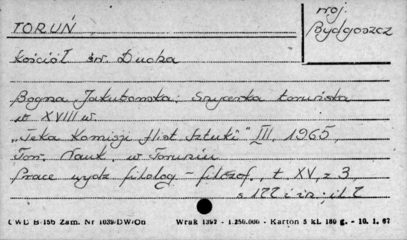 TORUŃ
woj. Bydgoszcz
Kościół św. Ducha
Bogna Jakubowska: Snycerka toruńska
w XVIII w.
„Teka Komisji Hist. Sztuki" III, 1965,
Tow. Nauk. w Toruniu
Prace wydz. filolog - filozof., t. XV, z 3,
s 177 i in; il 7
CWD B-156 Zam. Nr 1039/DW/Oe Wrak 1397 - 1.250.000 - Karton 5 kl. 180 g. - 10. 1. 67